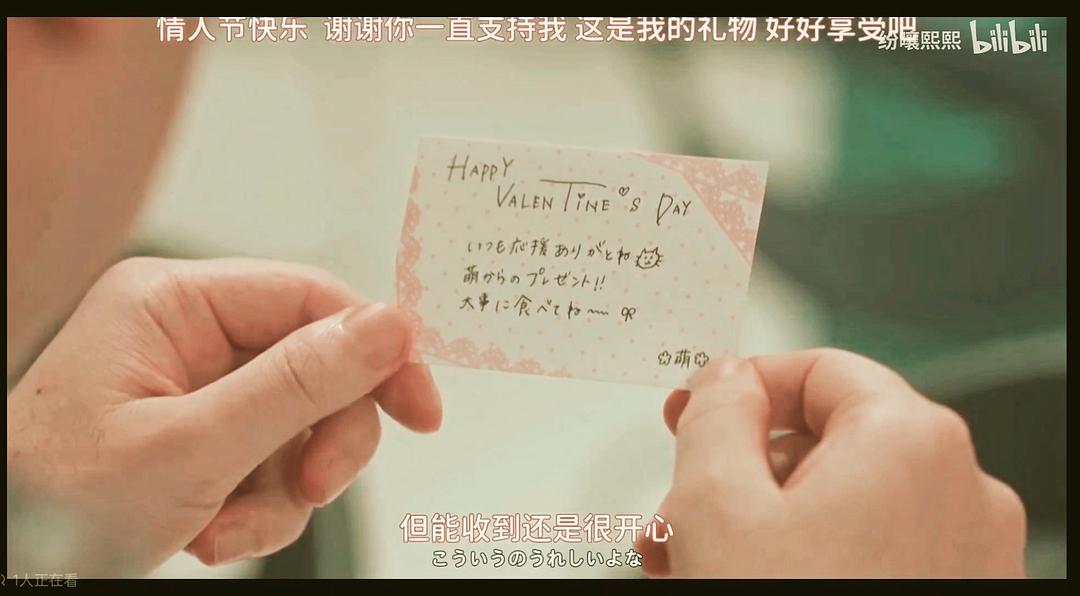 情人节快乐 谢谢你一直支持我 这是我的礼物 好好享受吧
纷嚷熙熙 bilibili
HAPPY
VALENTINE'S DAY
いつも応援ありがとね
萌からのプレゼント!!
大事に食べてね〜
萌
但能收到还是很开心
こういうのうれしいよな
1人正在看